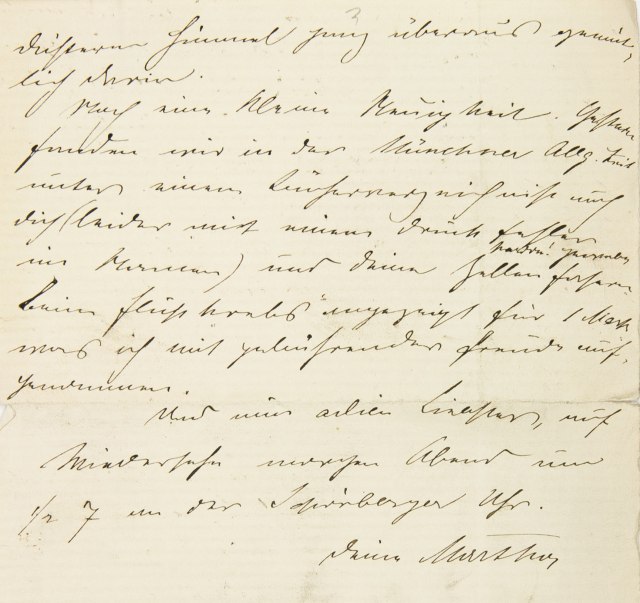 3
Himmel ganz überaus gemüt-
lich darin.
Noch eine kleine Neuigkeit. Gestern
fanden wir in der Münchner Allg. Zeit
unter einem Bücherverzeichniß auch
dich (leider mit einem Druck fehler
Pardon!
im Namen) und deine Zellen fasern
beim Flußkrebs angezeigt für 1 Mark
was ich mit gebührender Freude auf-
genommen.
Und nun adieu Liebster, auf
Wiedersehn morgen Abend um
1/2 7 an der Uhr.
Deine Martha